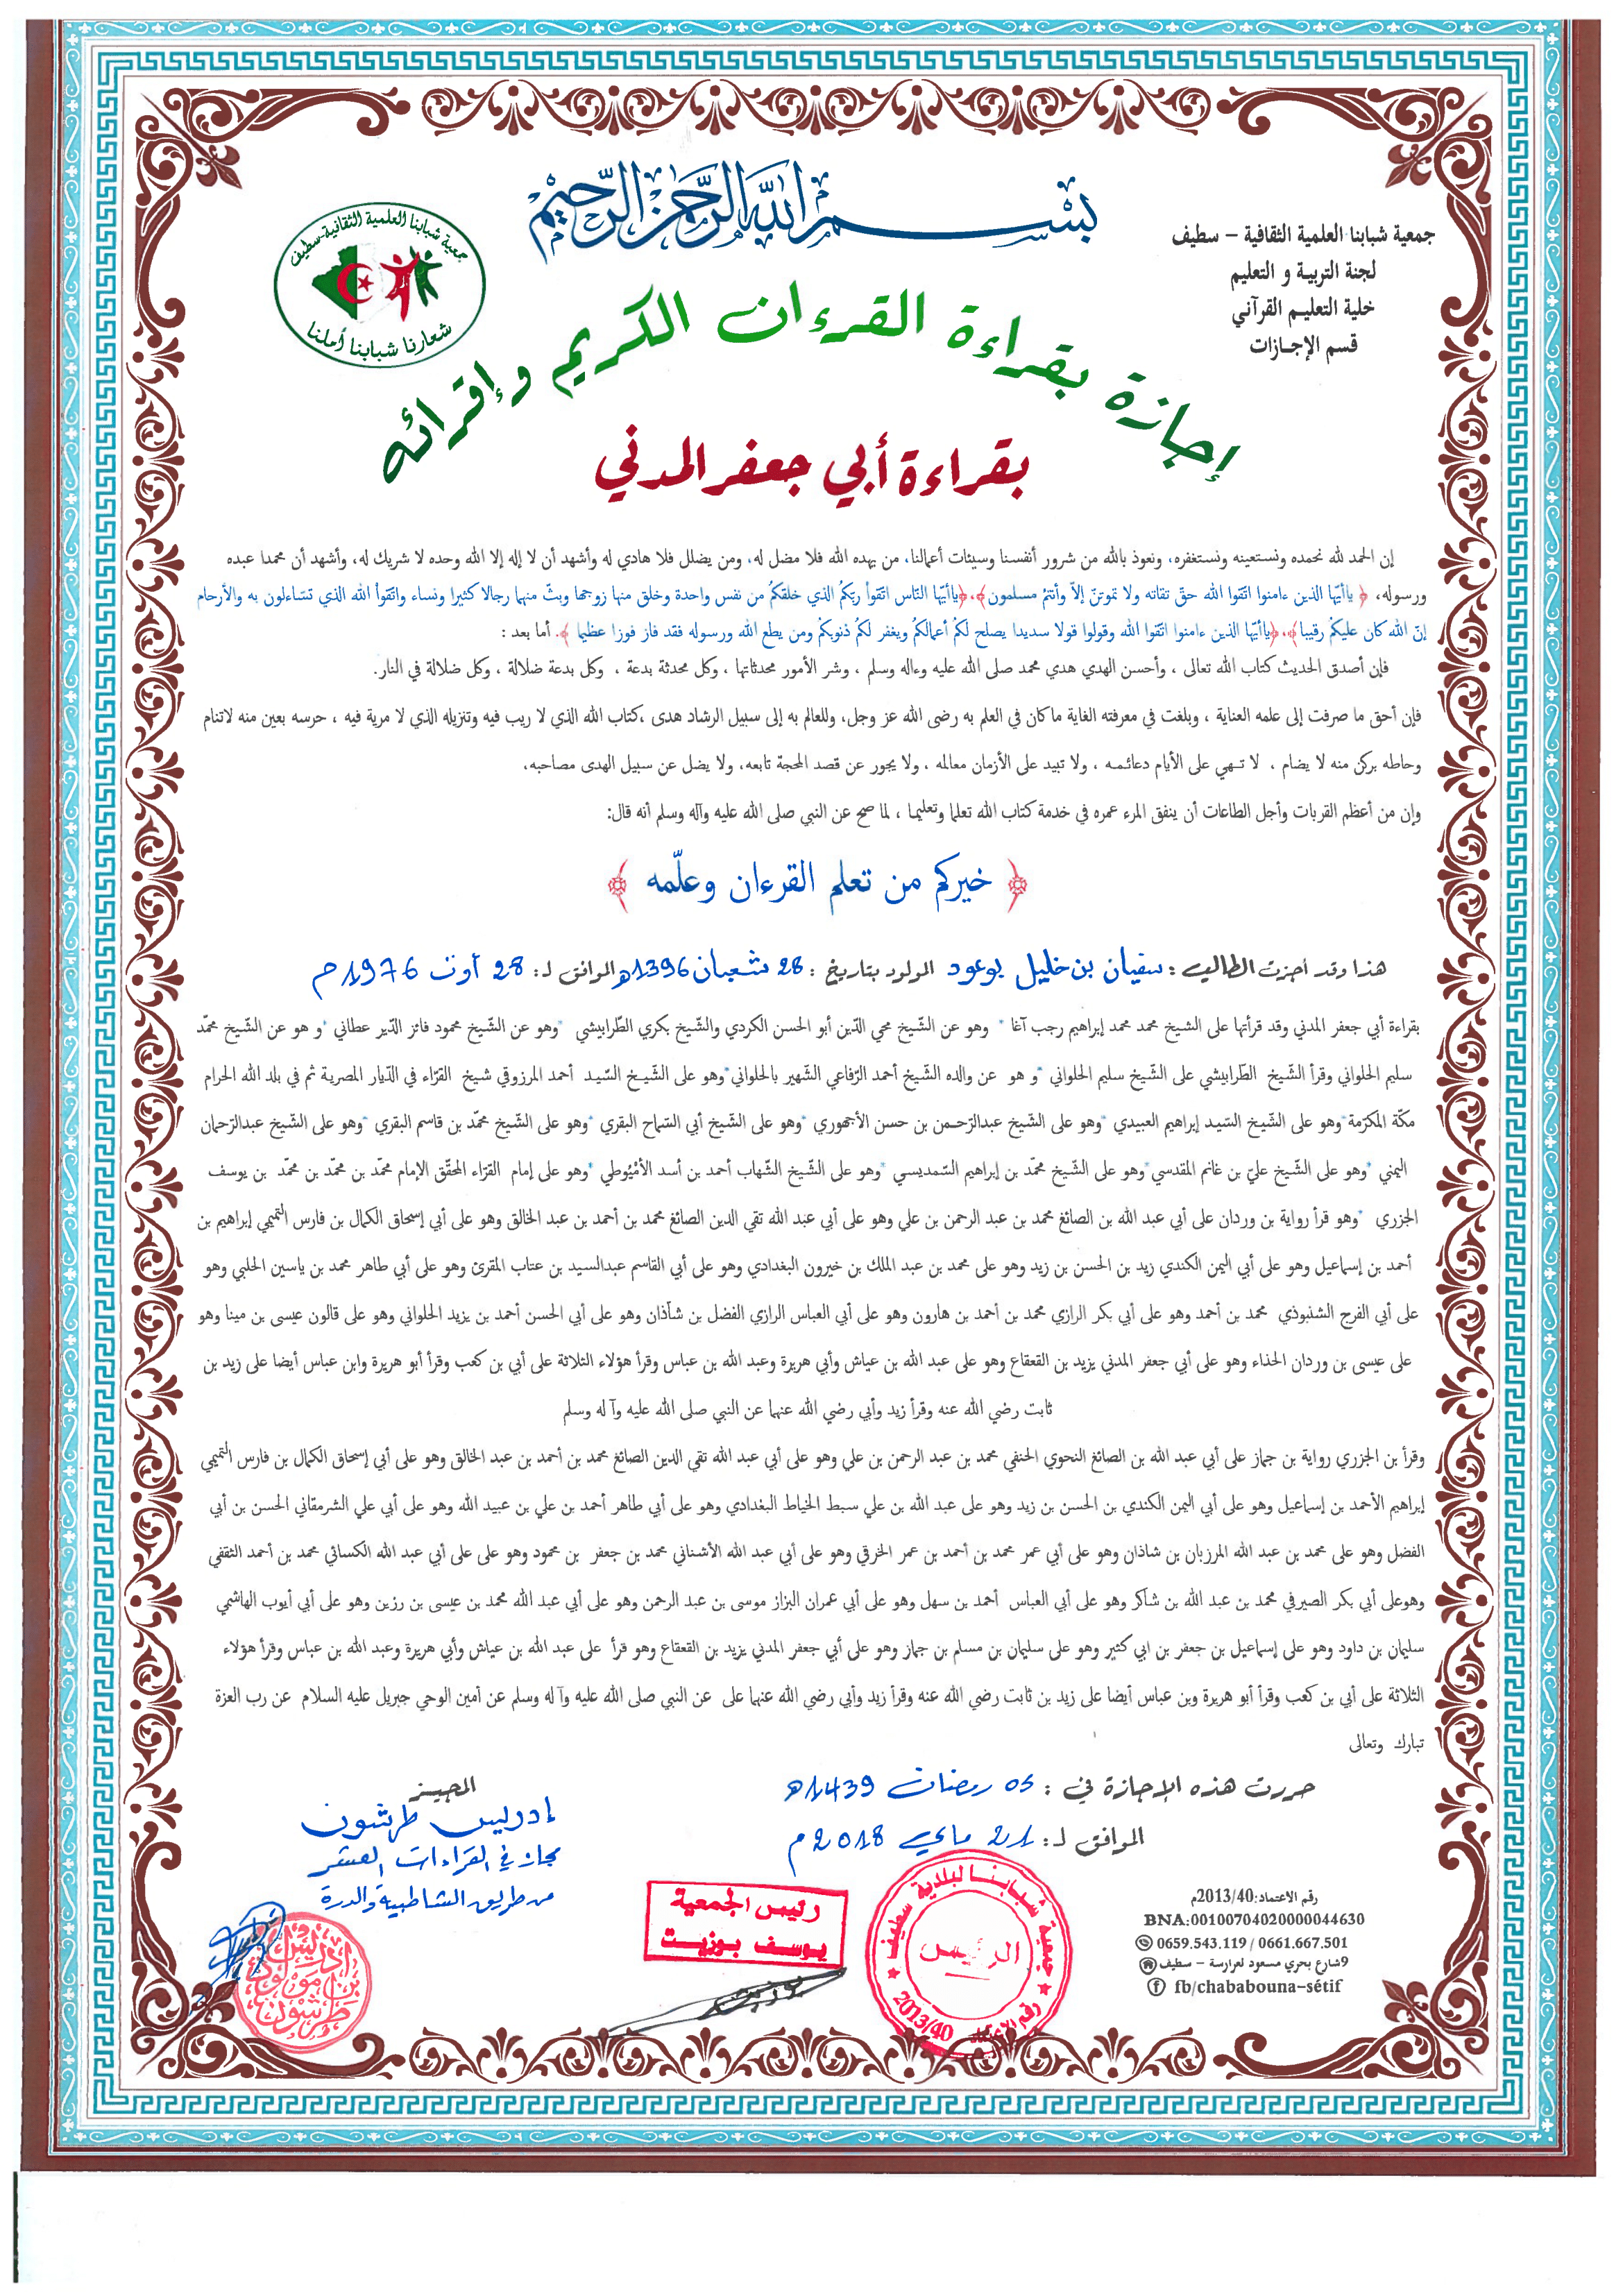 بسم الله الرحمن الرحيم
جمعية شبابنا العلمية الثقافية - سطيف
لجنة التربية و التعليم
خلية التعليم القرآني
قسم الإجازات
جمعية شبابنا العلمية الثقافية-سطيف
شعارنا شبابنا أملنا
إجازة بقراءة القرءان الكريم وإقرائه
بقراءة أبي جعفر المدني
إن الحمد لله نحمده ونستعينه ونستغفره، ونعوذ بالله من شرور أنفسنا وسيئات أعمالنا، من يهده الله فلا مضل له، ومن يضلل فلا هادي له وأشهد أن لا إله إلا الله وحده لا شريك له، وأشهد أن محمدا عبده
ورسوله، ﴿ ياأيّها الذين ءامنوا اتّقوا الله حقّ تقاته ولا تموتنّ إلاّ وأنتمُ مسلمون﴾،﴿ياأيّها النّاس اتّقوأ ربّكمُ الذي خلقكمُ من نفس واحدة وخلق منها زوجها وبثّ منهما رجالا كثيرا ونساء واتّقوأ الله الذي تسّاءلون به والأرحام
إنّ الله كان عليكمُ رقيبا﴾،﴿ياأيّها الذين ءامنوا اتّقوا الله وقولوا قولا سديدا يصلح لكمُ أعمالكمُ ويغفر لكمُ ذنوبكمُ ومن يطع الله ورسوله فقد فاز فوزا عظيما ﴾. أما بعد :
فإن أصدق الحديث كتاب الله تعالى ، وأحسن الهدي هدي محمد صلى الله عليه وءاله وسلم ، وشر الأمور محدثاتها ، وكل محدثة بدعة ، وكل بدعة ضلالة ، وكل ضلالة في النار.
فإن أحق ما صرفت إلى علمه العناية ، وبلغت في معرفته الغاية ماكان في العلم به رضى الله عز وجل، وللعالم به إلى سبيل الرشاد هدى ،كتاب الله الذي لا ريب فيه وتنزيله الذي لا مرية فيه ، حرسه بعين منه لاتنام
وحاطه بركن منه لا يضام ، لا تهي على الأيام دعائمه ، ولا تبيد على الأزمان معالمه ، ولا يجور عن قصد المحجة تابعه، ولا يضل عن سبيل الهدى مصاحبه،
وإن من أعظم القربات وأجل الطاعات أن ينفق المرء عمره في خدمة كتاب الله تعلما وتعليما ، لما صح عن النبي صلى الله عليه وآله وسلم أنه قال:
﴿ خيركم من تعلم القرءان وعلّمه ﴾
هذا وقد أجزت الطالب : سفيان بن خليل بوعود المولود بتاريخ : 28 شعبان 1396هـ الموافق لـ: 28 أوت 1976 م
بقراءة أبي جعفر المدني وقد قرأتها على الشيخ محمد محمد إبراهيم رجب آغا * وهو عن الشّيخ محي الدّين أبو الحسن الكردي والشّيخ بكري الطّرابيشي *وهو عن الشّيخ محمود فائز الدّير عطاني *و هو عن الشّيخ محمّد
سليم الحلواني وقرأ الشّيخ الطّرابيشي على الشّيخ سليم الحلواني *و هو عن والده الشّيخ أحمد الرّفاعي الشّهير بالحلواني*وهو على الشّيخ السّيد أحمد المرزوقي شيخ القرّاء في الدّيار المصرية ثم في بلد الله الحرام
مكّة المكرّمة*وهو على الشّيخ السّيد إبراهيم العبيدي *وهو على الشّيخ عبدالرّحمن بن حسن الأجهوري *وهو على الشّيخ أبي السّماح البقري *وهو على الشّيخ محمّد بن قاسم البقري *وهو على الشّيخ عبدالرّحمان
اليمني *وهو على الشّيخ عليّ بن غانم المقدسي*وهو على الشّيخ محمّد بن إبراهيم السّمديسي *وهو على الشّيخ الشّهاب أحمد بن أسد الأميُوطي *وهو على إمام القرّاء المحقّق الإمام محمّد بن محمّد بن محمّد بن يوسف
الجزري *وهو قرأ رواية بن وردان على أبي عبد الله بن الصائغ محمد بن عبد الرحمن بن علي وهو على أبي عبد الله تقي الدين الصائغ محمد بن أحمد بن عبد الخالق وهو على أبي إسحاق الكمال بن فارس التميمي إبراهيم بن
أحمد بن إسماعيل وهو على أبي اليمن الكندي زيد بن الحسن بن زيد وهو على محمد بن عبد الملك بن خيرون البغدادي وهو على أبي القاسم عبدالسيد بن عتاب المقرئ وهو على أبي طاهر محمد بن ياسين الحلبي وهو
على أبي الفرج الشنبوذي محمد بن أحمد وهو على أبي بكر الرازي محمد بن أحمد بن هارون وهو على أبي العباس الرازي الفضل بن شآذان وهو على أبي الحسن أحمد بن يزيد الحلواني وهو على قالون عيسى بن مينا وهو
على عيسى بن وردان الحذاء وهو على أبي جعفر المدني يزيد بن القعقاع وهو على عبد الله بن عياش وأبي هريرة وعبد الله بن عباس وقرأ هؤلاء الثلاثة على أبي بن كعب وقرأ أبو هريرة وابن عباس أيضا على زيد بن
ثابت رضي الله عنه وقرأ زيد وأبي رضي الله عنهما عن النبي صلى الله عليه وآ له وسلم
وقرأ بن الجزري رواية بن جماز على أبي عبد الله بن الصائغ النحوي الحنفي محمد بن عبد الرحمن بن علي وهو على أبي عبد الله تقي الدين الصائغ محمد بن أحمد بن عبد الخالق وهو على أبي إسحاق الكمال بن فارس التميمي
إبراهيم الأحمد بن إسماعيل وهو على أبي اليمن الكندي بن الحسن بن زيد وهو على عبد الله بن علي سبط الخياط البغدادي وهو على أبي طاهر أحمد بن علي بن عبيد الله وهو على أبي علي الشرمقاني الحسن بن أبي
الفضل وهو على محمد بن عبد الله المرزبان بن شاذان وهو على أبي عمر محمد بن أحمد بن عمر الخرقي وهو على أبي عبد الله الأشناني محمد بن جعفر بن محمود وهو على على أبي عبد الله الكسائي محمد بن أحمد الثقفي
وهوعلى أبي بكر الصيرفي محمد بن عبد الله بن شاكر وهو على أبي العباس أحمد بن سهل وهو على أبي عمران البزاز موسى بن عبد الرحمن وهو على أبي عبد الله محمد بن عيسى بن رزين وهو على أبي أيوب الهاشمي
سليمان بن داود وهو على إسماعيل بن جعفر بن ابي كثير وهو على سليمان بن مسلم بن جماز وهو على أبي جعفر المدني يزيد بن القعقاع وهو قرأ على عبد الله بن عياش وأبي هريرة وعبد الله بن عباس وقرأ هؤلاء
الثلاثة على أبي بن كعب وقرأ أبو هريرة وبن عباس أيضا على زيد بن ثابت رضي الله عنه وقرأ زيد وأبي رضي الله عنهما على عن النبي صلى الله عليه وآ له وسلم عن أمين الوحي جبريل عليه السلام عن رب العزة
تبارك وتعالى
حررت هذه الإجازة في : 05 رمضان 1439هـ
الموافق لـ: 21 ماي 2018 م
المجيز
إدريس طرشون
مجاز في القراءات العشر
من طريق الشاطبية والدرة
إدريس بن مولود طرشون
رئيس الجمعية
يوسف بوزيت
جمعية شبابنا لبلدية سطيف
الرئيس
رقم الاعتماد 2013/40
رقم الاعتماد:2013/40م
BNA:00100704020000044630
0659.543.119 / 0661.667.501
9شارع بحري مسعود لعرارسة - سطيف
fb/chababouna-sétif